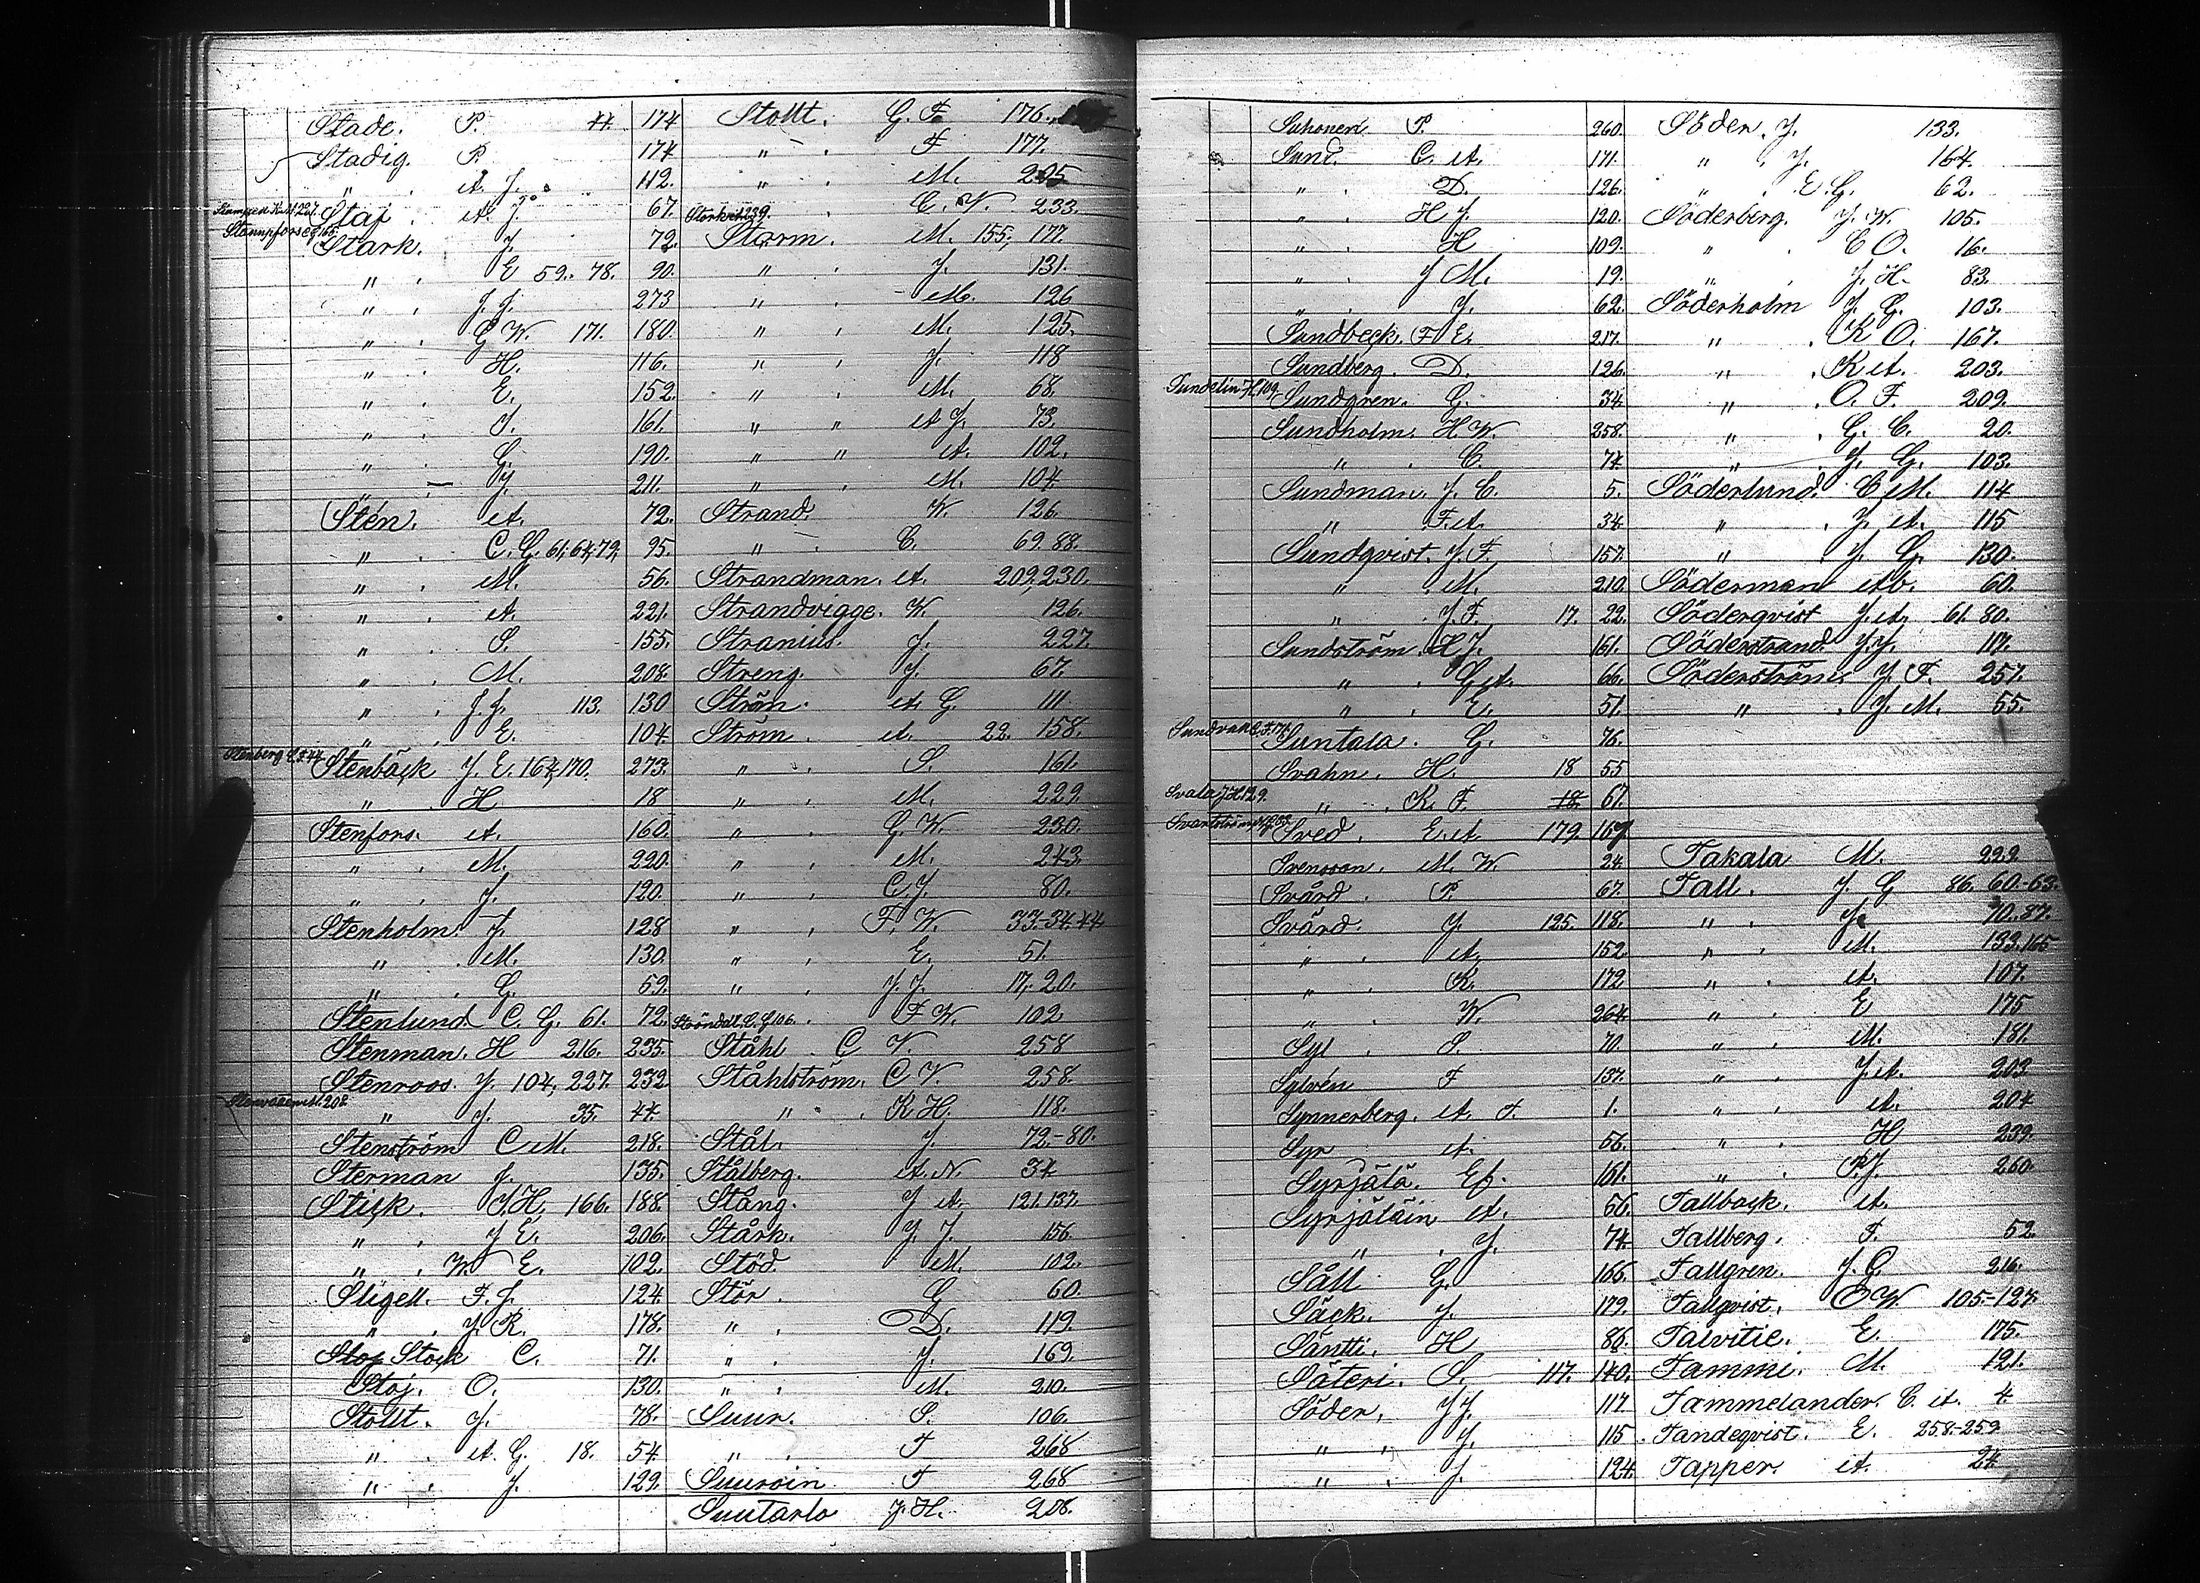 Stade. P. 44. 174
Stadig. P. 174
" . A. J. 112.
Staf . A. J. 67.
Stark. J. 72.
" . E 59. 78. 90.
" . J. J. 273
" . G W. 171. 180.
" . H. 116.
" . E. 152.
" . S. 161.
" . G. 190.
" . J. 211.
Stén. A. 72.
" . C. G. 61, 64, 79, 95.
" . M. 56.
" . A. 221.
" . S. 155.
" . M. 208.
" . J. J. 113. 130
" . E. 104.
Stenberg
Stenbäck J. E. 164, 170. 273.
" . H 18
Stenfors. A. 160.
" . M. 220.
" . J. 120.
Stenholm. J. 128
" . M. 130.
" . G. 59.
Stenlund C. G. 61. 72.
Stenman. H 216. 235.
Stenroos. J. 104, 227. 232
" J. 35. 44.
Stenström C M. 218.
Sterman J. 135.
Stick. S. H. 166. 188.
" . J E. 206.
" . W. E. 102.
Stigell. F. J. 124.
" . J. R. 178.
Stoj Stock C. 71.
Stoj. O. 130.
Stollt. J. 78.
" . A. G. 18. 54.
" . J. 129.
Stollt. G. F. 176.
" . F 177.
" . M. 205
" . C. V. 233.
Storm. M. 155, 177.
" . J. 131.
" . M. 126
" . M. 125.
" . J. 118
" . M. 68.
" " A J. 73.
" " A. 102.
" . M. 104
Strand. W. 126.
" . C. 69. 88.
Strandman. A. 209, 230.
Strandvigge. W. 126.
Stranius. J. 227.
Streng. J. 67.
Strön. A. G. 111
Ström. A. 22. 158.
" . S. 161.
" . M. 229.
" . G. W. 230.
" . M. 243.
" . C. J. 80.
" . F. W. 33.-34. 44
" . E. 51.
" . J. J. 17, 20.
Ströndal. C. G 106. . F W. 102
Ståhl. C V. 258
Ståhlström. C V. 258.
" . K. H. 118.
Stål. J. 72.-80.
Stålberg. A. N. 34
Stång. J A. 121. 137.
Stårk. J. J. 156
Stöd M. 102.
Stör. G 60.
" . D. 119.
" . J. 169.
" . M. 210.
Suur. S. 106.
" . F 268
Suuroin F 268
Suutarla J. H. 208.
Suhonen P. 260.
Sund. C. A. 171.
" . D. 126.
" . H J. 120.
" . H 109.
" . J M. 19.
" . J. 62.
Sundbeck. F E. 217.
Sundberg. D. 126.
Sundelin H. 109.
Sundgren. G. 34.
Sundholm. H. W. 258.
" . C. 74
Sundman. J. C. 5.
" . F. A. 34.
Sundqvist. J. F. 157.
" . M. 210.
" . J. F. 17. 22.
Sundström. J. 161.
" . G A. 66.
" . E. 51.
Suntala. G. 76.
Svahn. H. 18 55
" . K. F. 18. 67.
Sved. E. A. 179.
Svensson. M. W. 24.
Svärd. P. 67.
Svärd. J. 125. 118.
" . A. 152.
" . K. 172
" . W. 264.
Syl . S. 70.
Sylvén F 137.
Synnerberg. A. F. 1.
Syr A. 56.
Syrjälä. Ef. 161.
Syrjäläin A. 56.
" . J. 74.
Såll G. 166.
Säck. J. 179.
Säntti. H 86.
Säteri. S. 117. 140.
Söder. J J. 117.
" . J. 115
" . J. 124.
Söder. J. 133.
" . J. 164.
" . E. G. 62.
Söderberg. J. W. 105.
" . C O. 16.
" . J. H. 83.
Söderholm J. G. 103.
" . K O. 167.
" . K A. 203.
" . O. F. 209.
" . G. C. 20.
" . J. G. 103.
Söderlund. C M. 114
" . J. A. 115
" . J. G. 130.
Söderman 60.
Söderqvist J. A. 61. 80.
Söderstrand J. J. 117.
Söderström. J. F. 257.
" . J. M. 55.
Takala M. 222
Tall. J. G 86. 60.-63.
" . J. 70. 87.
" . M. 133. 165
" . A. 107.
" . E 175
" . M. 181.
" . J. A. 203
" . A. 204
" . H 239.
" . P. J. 260.
Tallback. A.
Tallberg. F. 52.
Tallgren. J. G. 216.
Tallqvist. E W. 105.-127.
Talvitie. E. 175.
Tammi. M. 121.
Tammelander. C. A. 4.
Tandeqvist. E. 258.-259.
Tapper. A. 24.